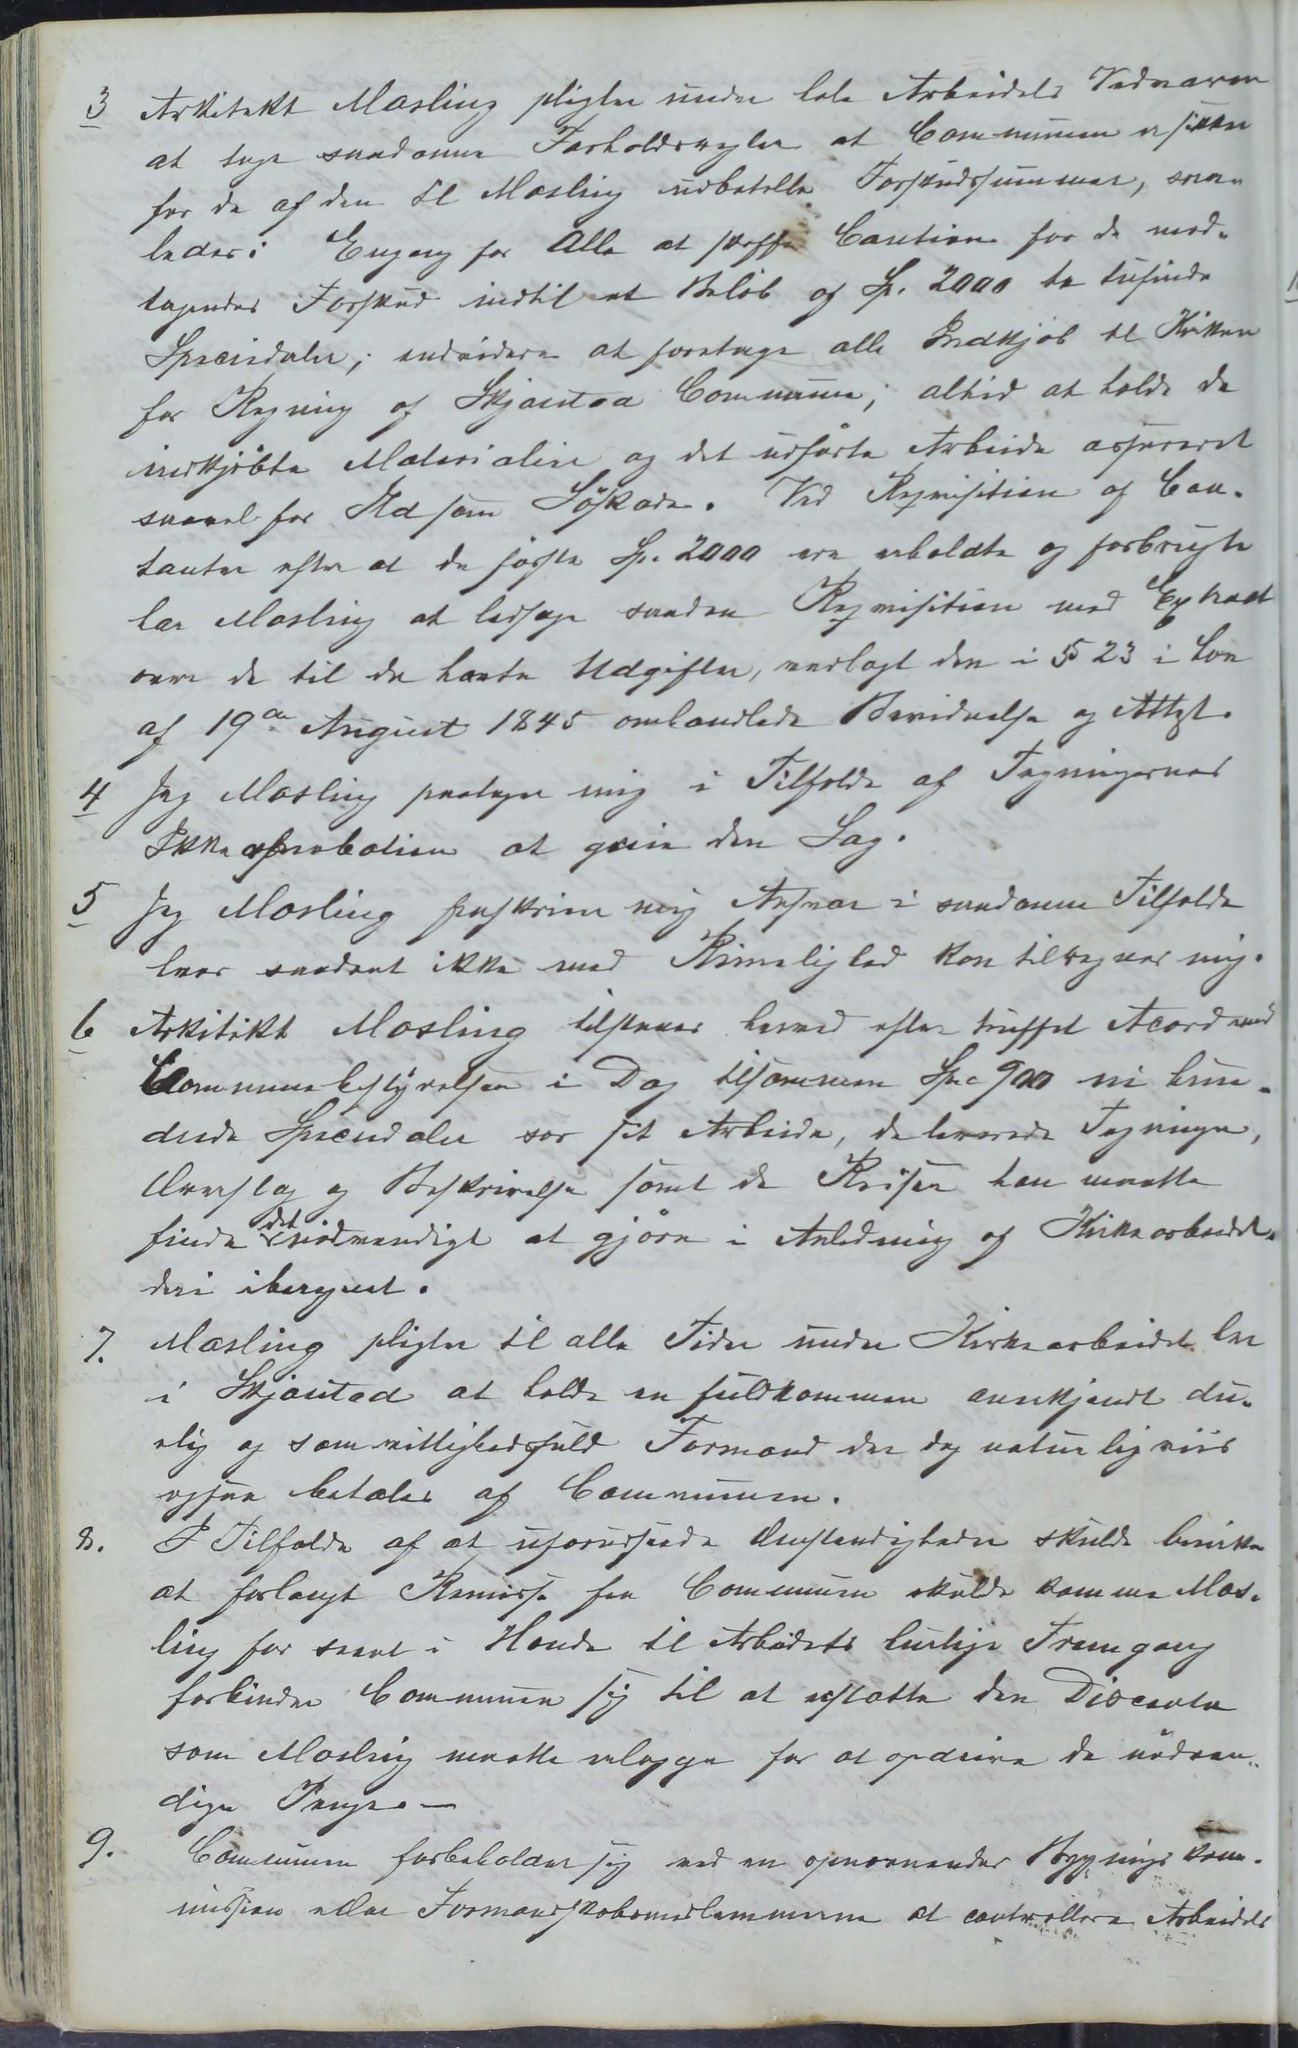 3 Arkitekt Masling pligter under hele Arbeidets Vedvaren
at tage saadanne Forholdsregler at Communen er sikker
for de af den til Masling udbetalte Forskudssummer, saa-
ledes: Engang for Alle at skaffe Caution for de mod-
tagendes Forskud indtil et Beløb af Sp. 2000 to tusinde
Speciedaler; endvidere at foretage alle Indkjøb til Kirken
for Regning af Skjærstad Commune; altid at holde de
indkjøbte Materialier og det udførte Arbeide assureret
saavel for Ild som Søskade. Ved Reqvisition af Con-
tanter efter at de første Sp. 2000 ere erholdte og forbrugte
har Masling at ledsage saadan Reqvisition med Extract
over de til da havte Udgifter, vedlagt den i § 23 i Lov
af 19de August 1845 omhandlede Bevidnelse og Attest.
4 Jeg Masling paatager mig i Tilfælde af Tegningernes
Ikkeapprobation at greie den Sag.
5 Jeg Masling fraskriver mig Ansvar i saadanne Tilfælde
hvor saadant ikke med Rimelighed kan tilregnes mig.
6 Arkitekt Masling tilstaaes herved efter truffet Acord med
Communebestyrelsen i Dag tilsammen Spd 900 ni hun-
drede Speciedaler for sit Arbeide, de leverede Tegninger,
Overslag og Beskrivelse samt de Reiser han maatte
finde det nødvendigt at gjøre i Anledning af Kirkearbeidet
deri iberegnet.
7. Masling pligter til alle Tider under Kirkearbeidet her
i Skjærstad at holde en fuldkommen anerkjendt du-
elig og samvittighedsfuld Formand der dog naturligviis
ogsaa betales af Communen.
8. I Tilfælde af at uforudseede Omstændigheder skulde bevirke
at forlangt Remisse fra Communen skulde komme Mas-
ling for seent i Hænde til Arbeidets hurtige Fremgang
forbinder Communen sig til at erstatte den Disconto
som Masling maatte erlægge for at opdrive de nødven-
dige Penge. —
9. Communen forbeholder sig ved en opnævnendes Bygnings Kom-
mission eller Formandskabsmedlemmerne at controllere Arbeidets